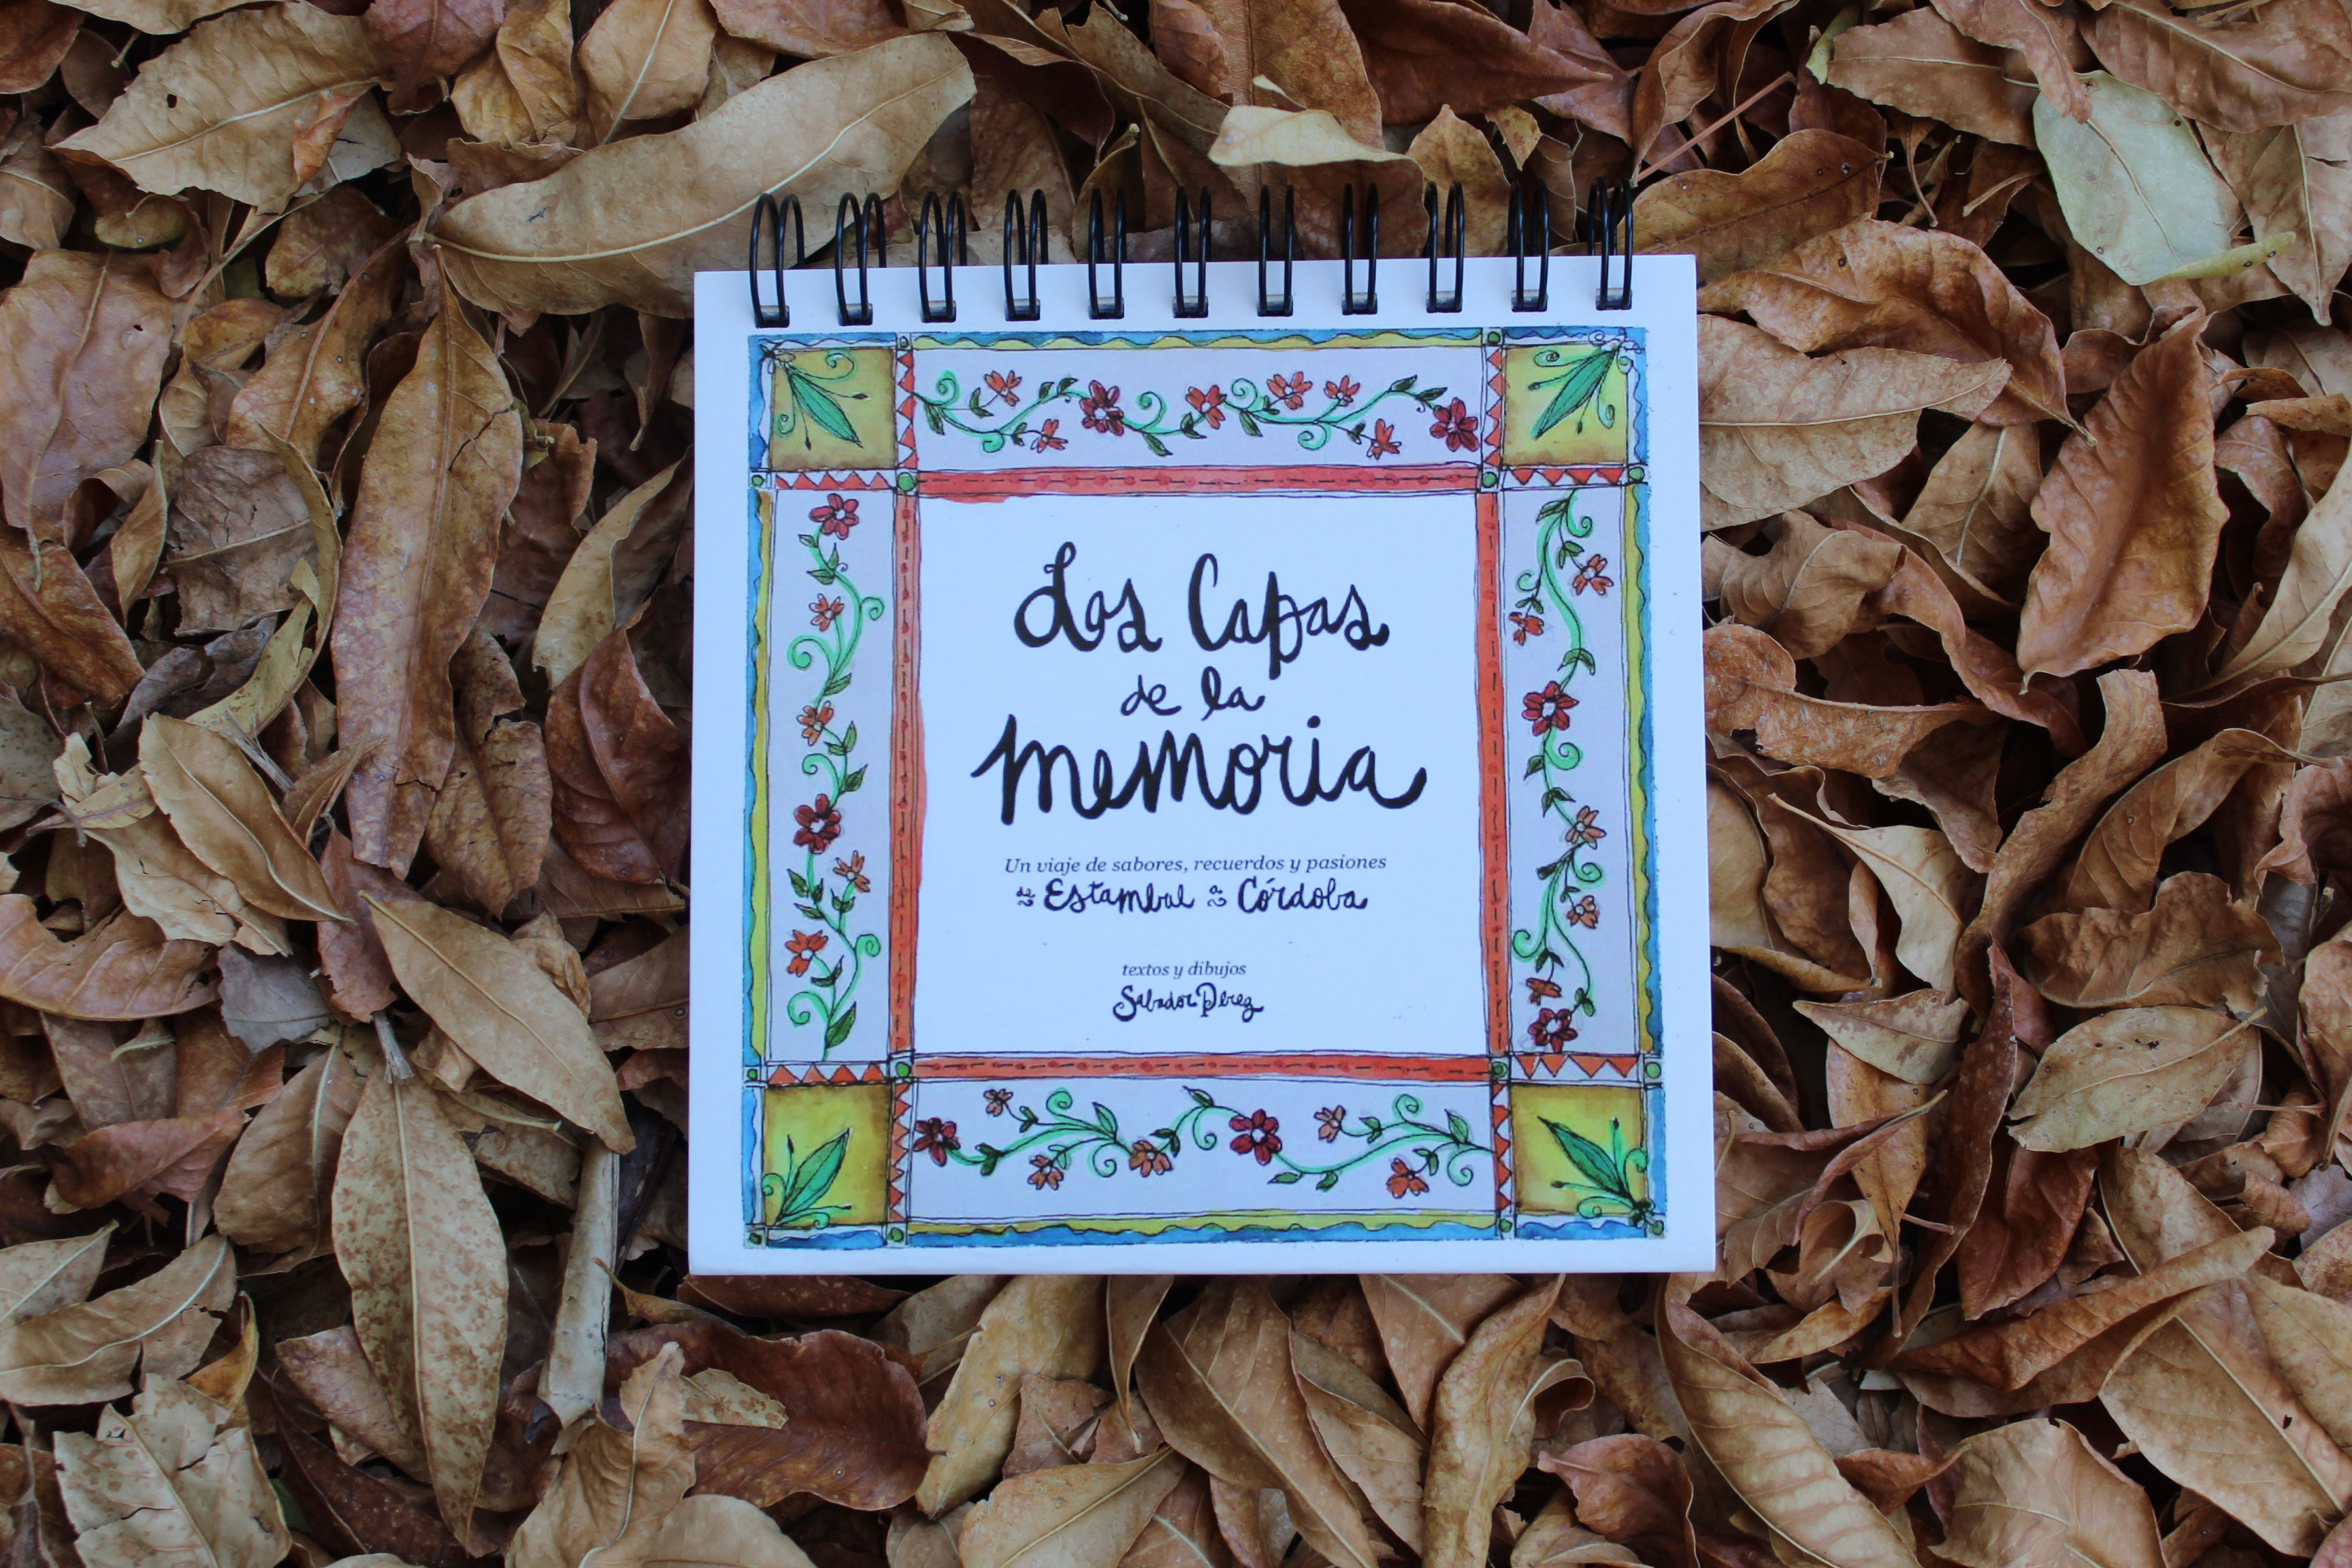 Las Capas
de la
memoria
Un viaje de sabores, recuerdos y pasiones
de Estambul a Córdoba
textos y dibujos
Salvador Pérez